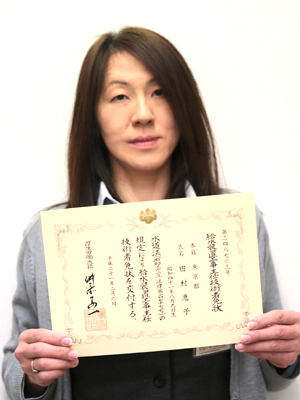 第二四八七三二号
給水装置工事主任技術者免状
本籍 東京都
氏名 田村恵子
昭和四十一年八月六日生
水道法(昭和三十二年法律第百七十七号)の
規定により給水装置工事主任
技術者免状を交付する。
平成二十一年二月六日
厚生労働大臣